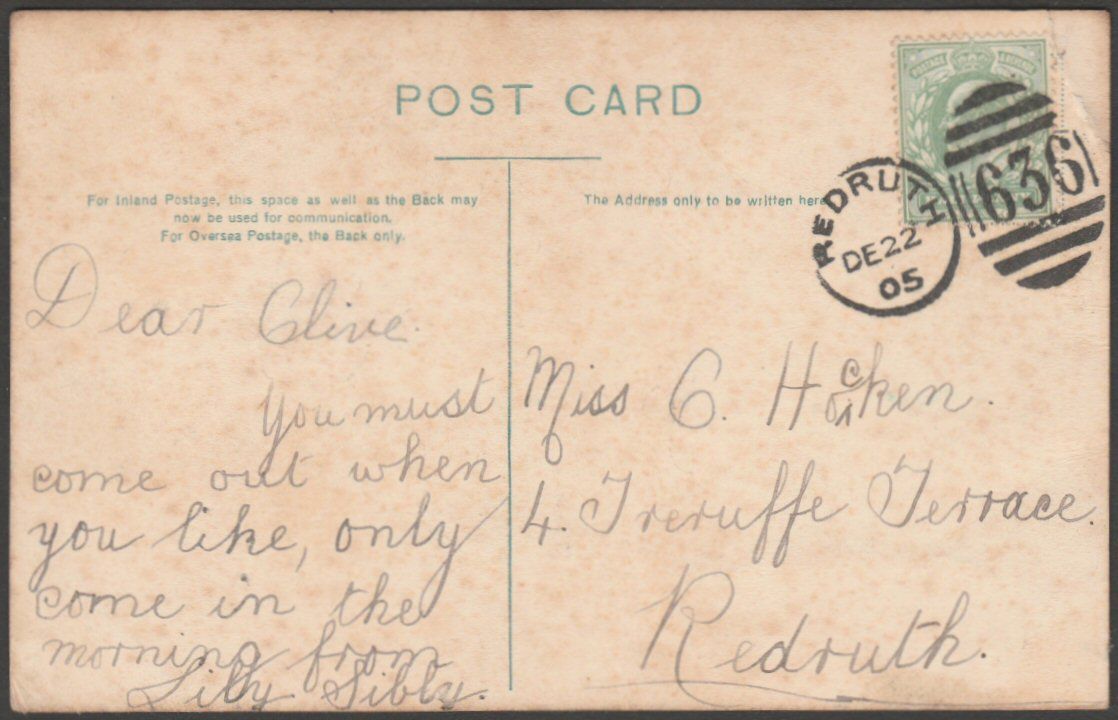 POST CARD
For Inland Postage, this space as well as the Back may
now be used for communication.
For Oversea Postage, the Back only.
The Address only to be written here
POSTAGE & REVENUE
REDRUTH
DE 22
05
636
Dear Clive.
You must
come out when
you like, only
come in the
morning from
Lily Sibly.
Miss C. Hocken.
4. Treruffe Terrace.
Redruth.